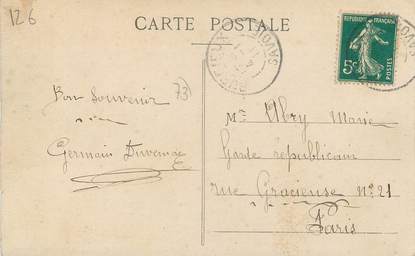 126
CARTE POSTALE
RÉPUBLIQUE FRANÇAISE
5c
POSTES
SAVOIE
73
Bon Souvenir
Germain
Mr Ubry Marie
Garde républicain
rue Gracieuse N° 21
Paris